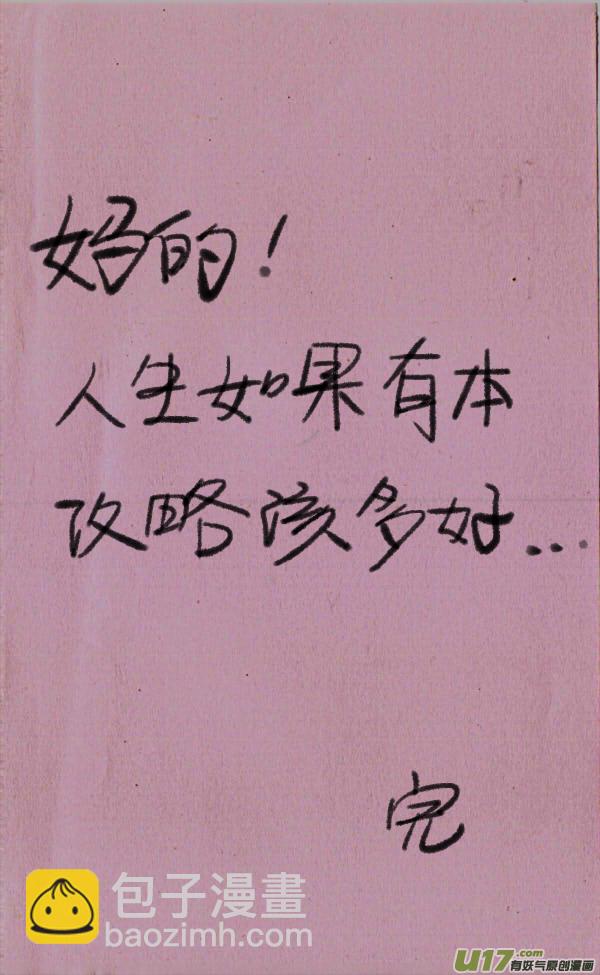 妈的！
人生如果有本
攻略该多好...
完
包子漫畫
baozimh.com
U17.com
有妖气原创漫画